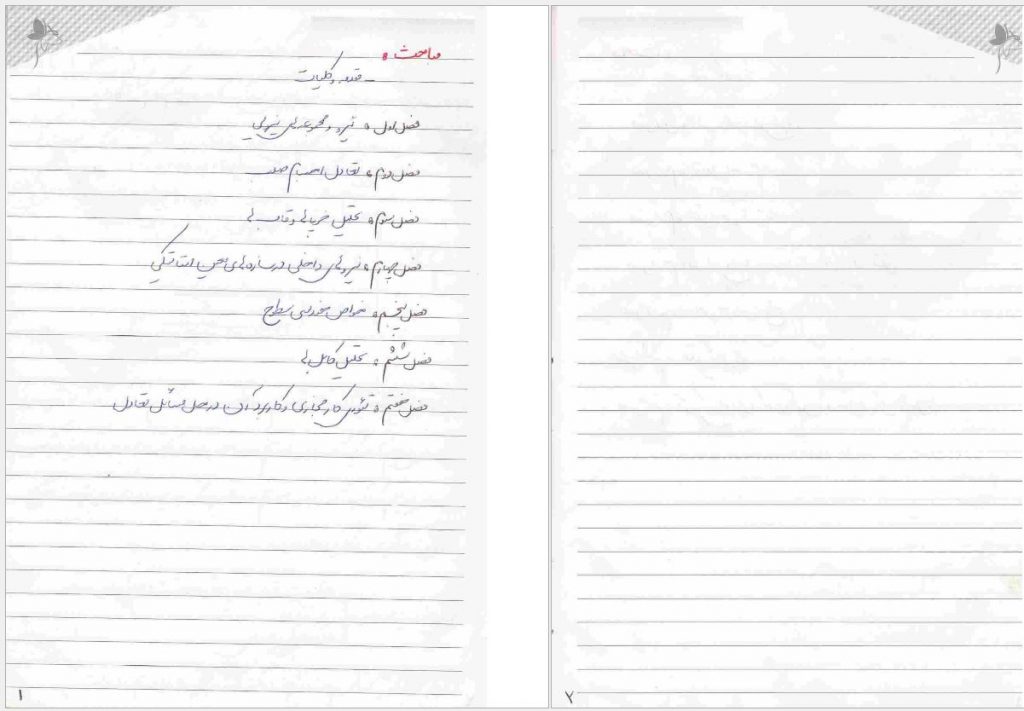 مباحث :
- مقدمه و کلیات
فصل اول : نیرو و مجموعه‌های نیرویی
فصل دوم : تعادل اجسام صلب
فصل سوم : تحلیل خرپاها و قاب‌ها
فصل چهارم : نیروهای داخلی در سازه‌های معین استاتیکی
فصل پنجم : خواص هندسی سطوح
فصل ششم : تحلیل کابل‌ها
فصل هفتم : تئوری کار مجازی و کاربرد آن در حل مسائل تعادل
۱
۲